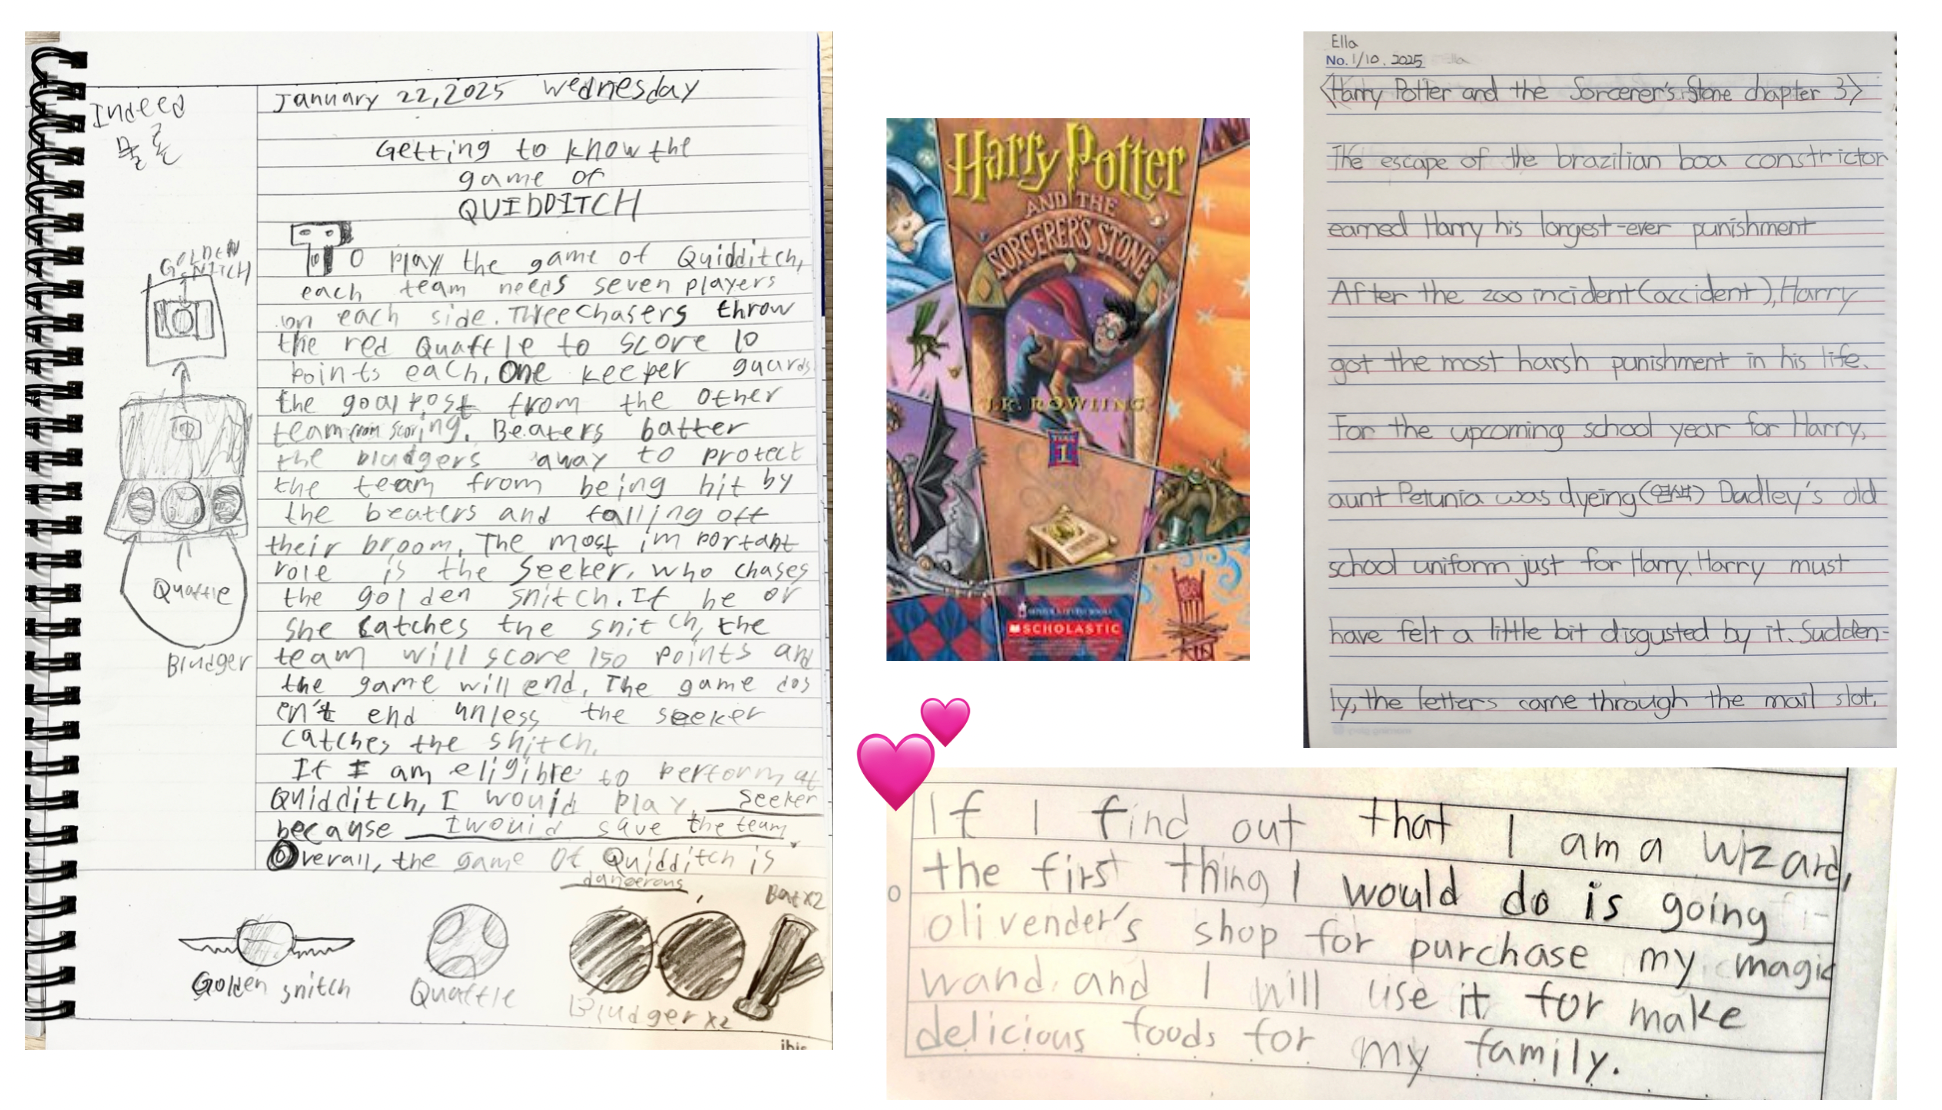 Indeed
물론
January 22, 2025 Wednesday
Getting to know the
game of
QUIDDITCH
To play the game of Quidditch,
each team needs seven players
on each side. Three chasers throw
the red Quaffle to score 10
points each. One keeper guards
the goal post from the other
team from scoring. Beaters batter
the bludgers away to protect
the team from being hit by
the beaters and falling off
their broom. The most important
role is the Seeker, who chases
the golden snitch. If he or
she catches the snitch, the
team will score 150 points and
the game will end. The game dos
en't end unless the seeker
catches the snitch.
If I am eligible to perform at
Quidditch, I would play seeker
because I would save the team.
Overall, the game of Quidditch is
dangerous.
GOLDEN
SNITCH
Quaffle
Bludger
Golden snitch
Quaffle
Bludger x2
Bat x2
Harry Potter
AND THE
SORCERER'S STONE
J.K. ROWLING
YEAR
1
SCHOLASTIC
Ella
No. 1/10. 2025
<Harry Potter and the Sorcerer's Stone chapter 3>
The escape of the brazilian boa constrictor
earned Harry his longest-ever punishment
After the zoo incident(accident), Harry
got the most harsh punishment in his life.
For the upcoming school year for Harry,
aunt Petunia was dyeing(염색) Dudley's old
school uniform just for Harry. Harry must
have felt a little bit disgusted by it. Sudden-
ly, the letters came through the mail slot.
If I find out that I am a wizard,
the first thing I would do is going
olivender's shop for purchase my magic
wand. and I will use it for make
delicious foods for my family.